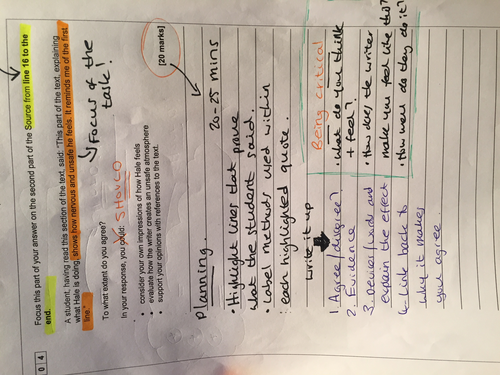 0 4
Focus this part of your answer on the second part of the Source from line 16 to the
end.
A student, having read this section of the text, said: "This part of the text, explaining
what Hale is doing shows how nervous and unsafe he feels. It reminds me of the first
line."
Focus of the
task!
To what extent do you agree?
In your response, you could: SHOULD
• consider your own impressions of how Hale feels
• evaluate how the writer creates an unsafe atmosphere
• support your opinions with references to the text.
[20 marks]
Planning. 20-25 mins
• Highlight lines that prove
what the student said.
• Label methods used within
each highlighted quote.
write it up
1 Agree/disagree?
2. Evidence
3. Devices/words and
explain the effect
4. Link back to
why it makes
you agree
Being critical
• What do you think
+ feel?
• How does the writer
make you feel like this?
• How well do they do it?